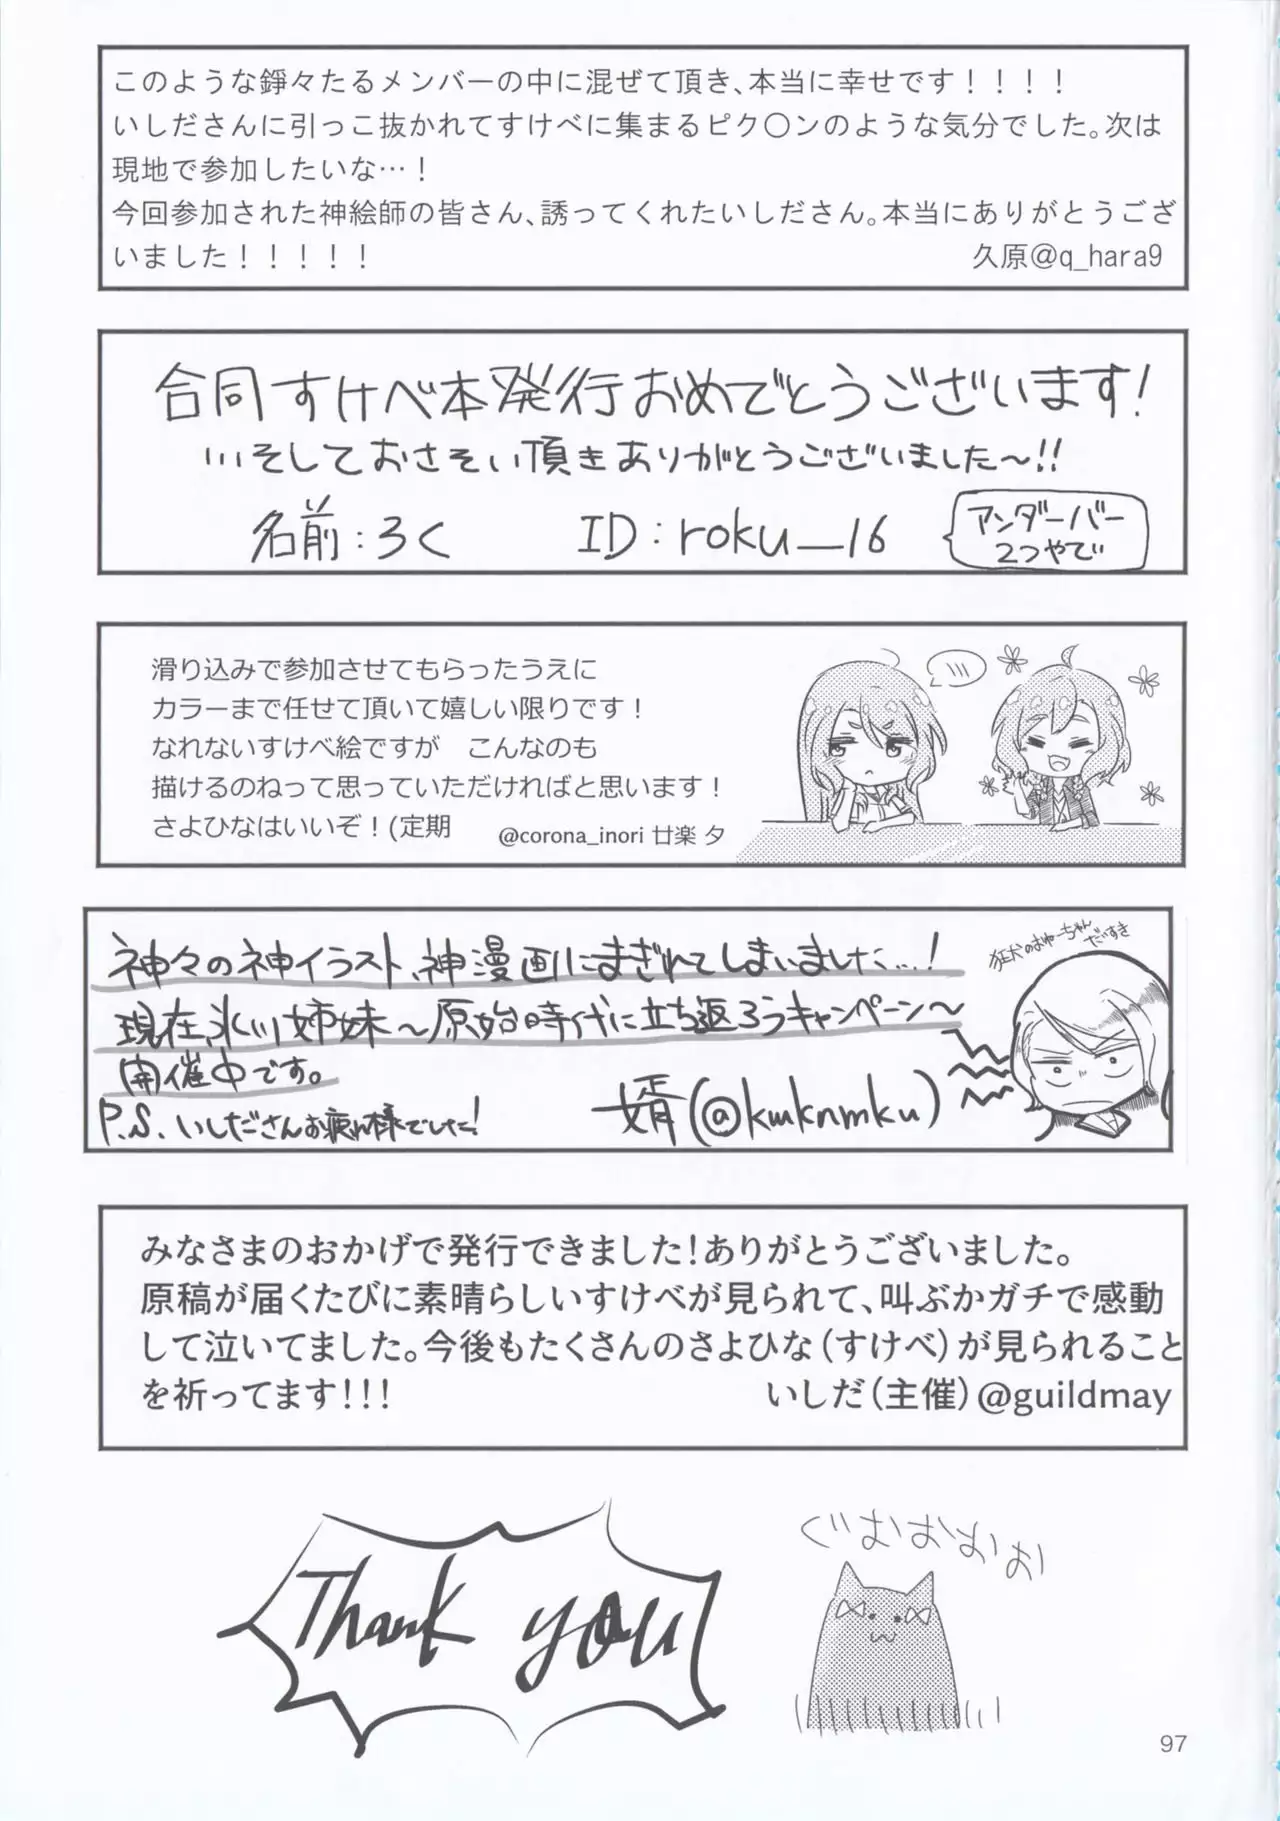 このような錚々たるメンバーの中に混ぜて頂き、本当に幸せです！！！！
いしださんに引っこ抜かれてすけべに集まるピク〇ンのような気分でした。次は
現地で参加したいな…！
今回参加された神絵師の皆さん、誘ってくれたいしださん。本当にありがとうござ
いました！！！！！
久原@q_hara9
合同すけべ本発行おめでとうございます！
…そしておさそい頂きありがとうございました〜!!
名前：ろく ID：roku__16
アンダーバー
2つやで
滑り込みで参加させてもらったうえに
カラーまで任せて頂いて嬉しい限りです！
なれないすけべ絵ですが　こんなのも
描けるのねって思っていただければと思います！
さよひなはいいぞ！(定期
@corona_inori 廿楽 夕
神々の神イラスト、神漫画にまぎれてしまいました…！
現在、氷川姉妹〜原始時代に立ち返ろうキャンペーン〜
開催中です。
P.S. いしださんお疲れ様でした！
婿(@kmknmku)
狂犬のおねーちゃん
だいすき
みなさまのおかげで発行できました！ありがとうございました。
原稿が届くたびに素晴らしいすけべが見られて、叫ぶかガチで感動
して泣いてました。今後もたくさんのさよひな（すけべ）が見られること
を祈ってます！！！
いしだ（主催）@guildmay
Thank you
ぐおおおおお
97